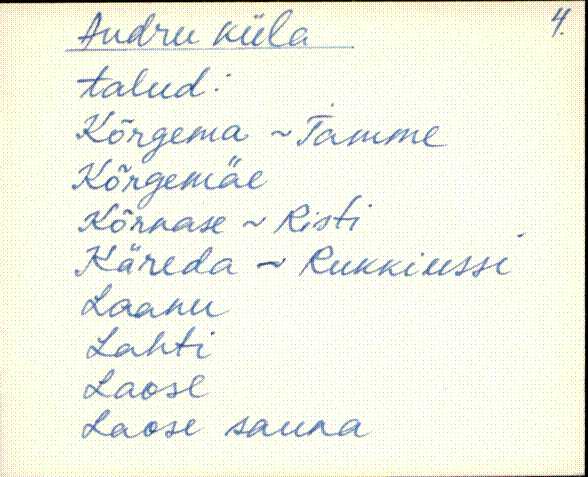 4.
Andru küla
talud:
Kõrgema ~ Tamme
Kõrgemäe
Kõrnase ~ Risti
Käreda ~ Rukkiussi
Laanu
Lahti
Laose
Laose sauna